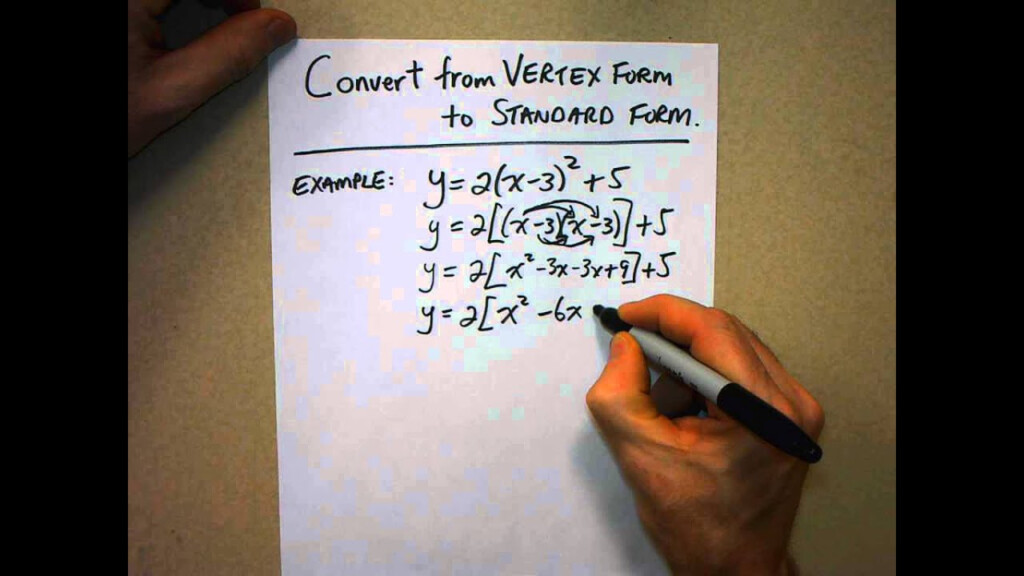 Convert from VERTEX FORM
to STANDARD FORM.
EXAMPLE: y = 2(x-3)² + 5
y = 2[(x-3)(x-3)] + 5
y = 2[x² - 3x - 3x + 9] + 5
y = 2[x² - 6x